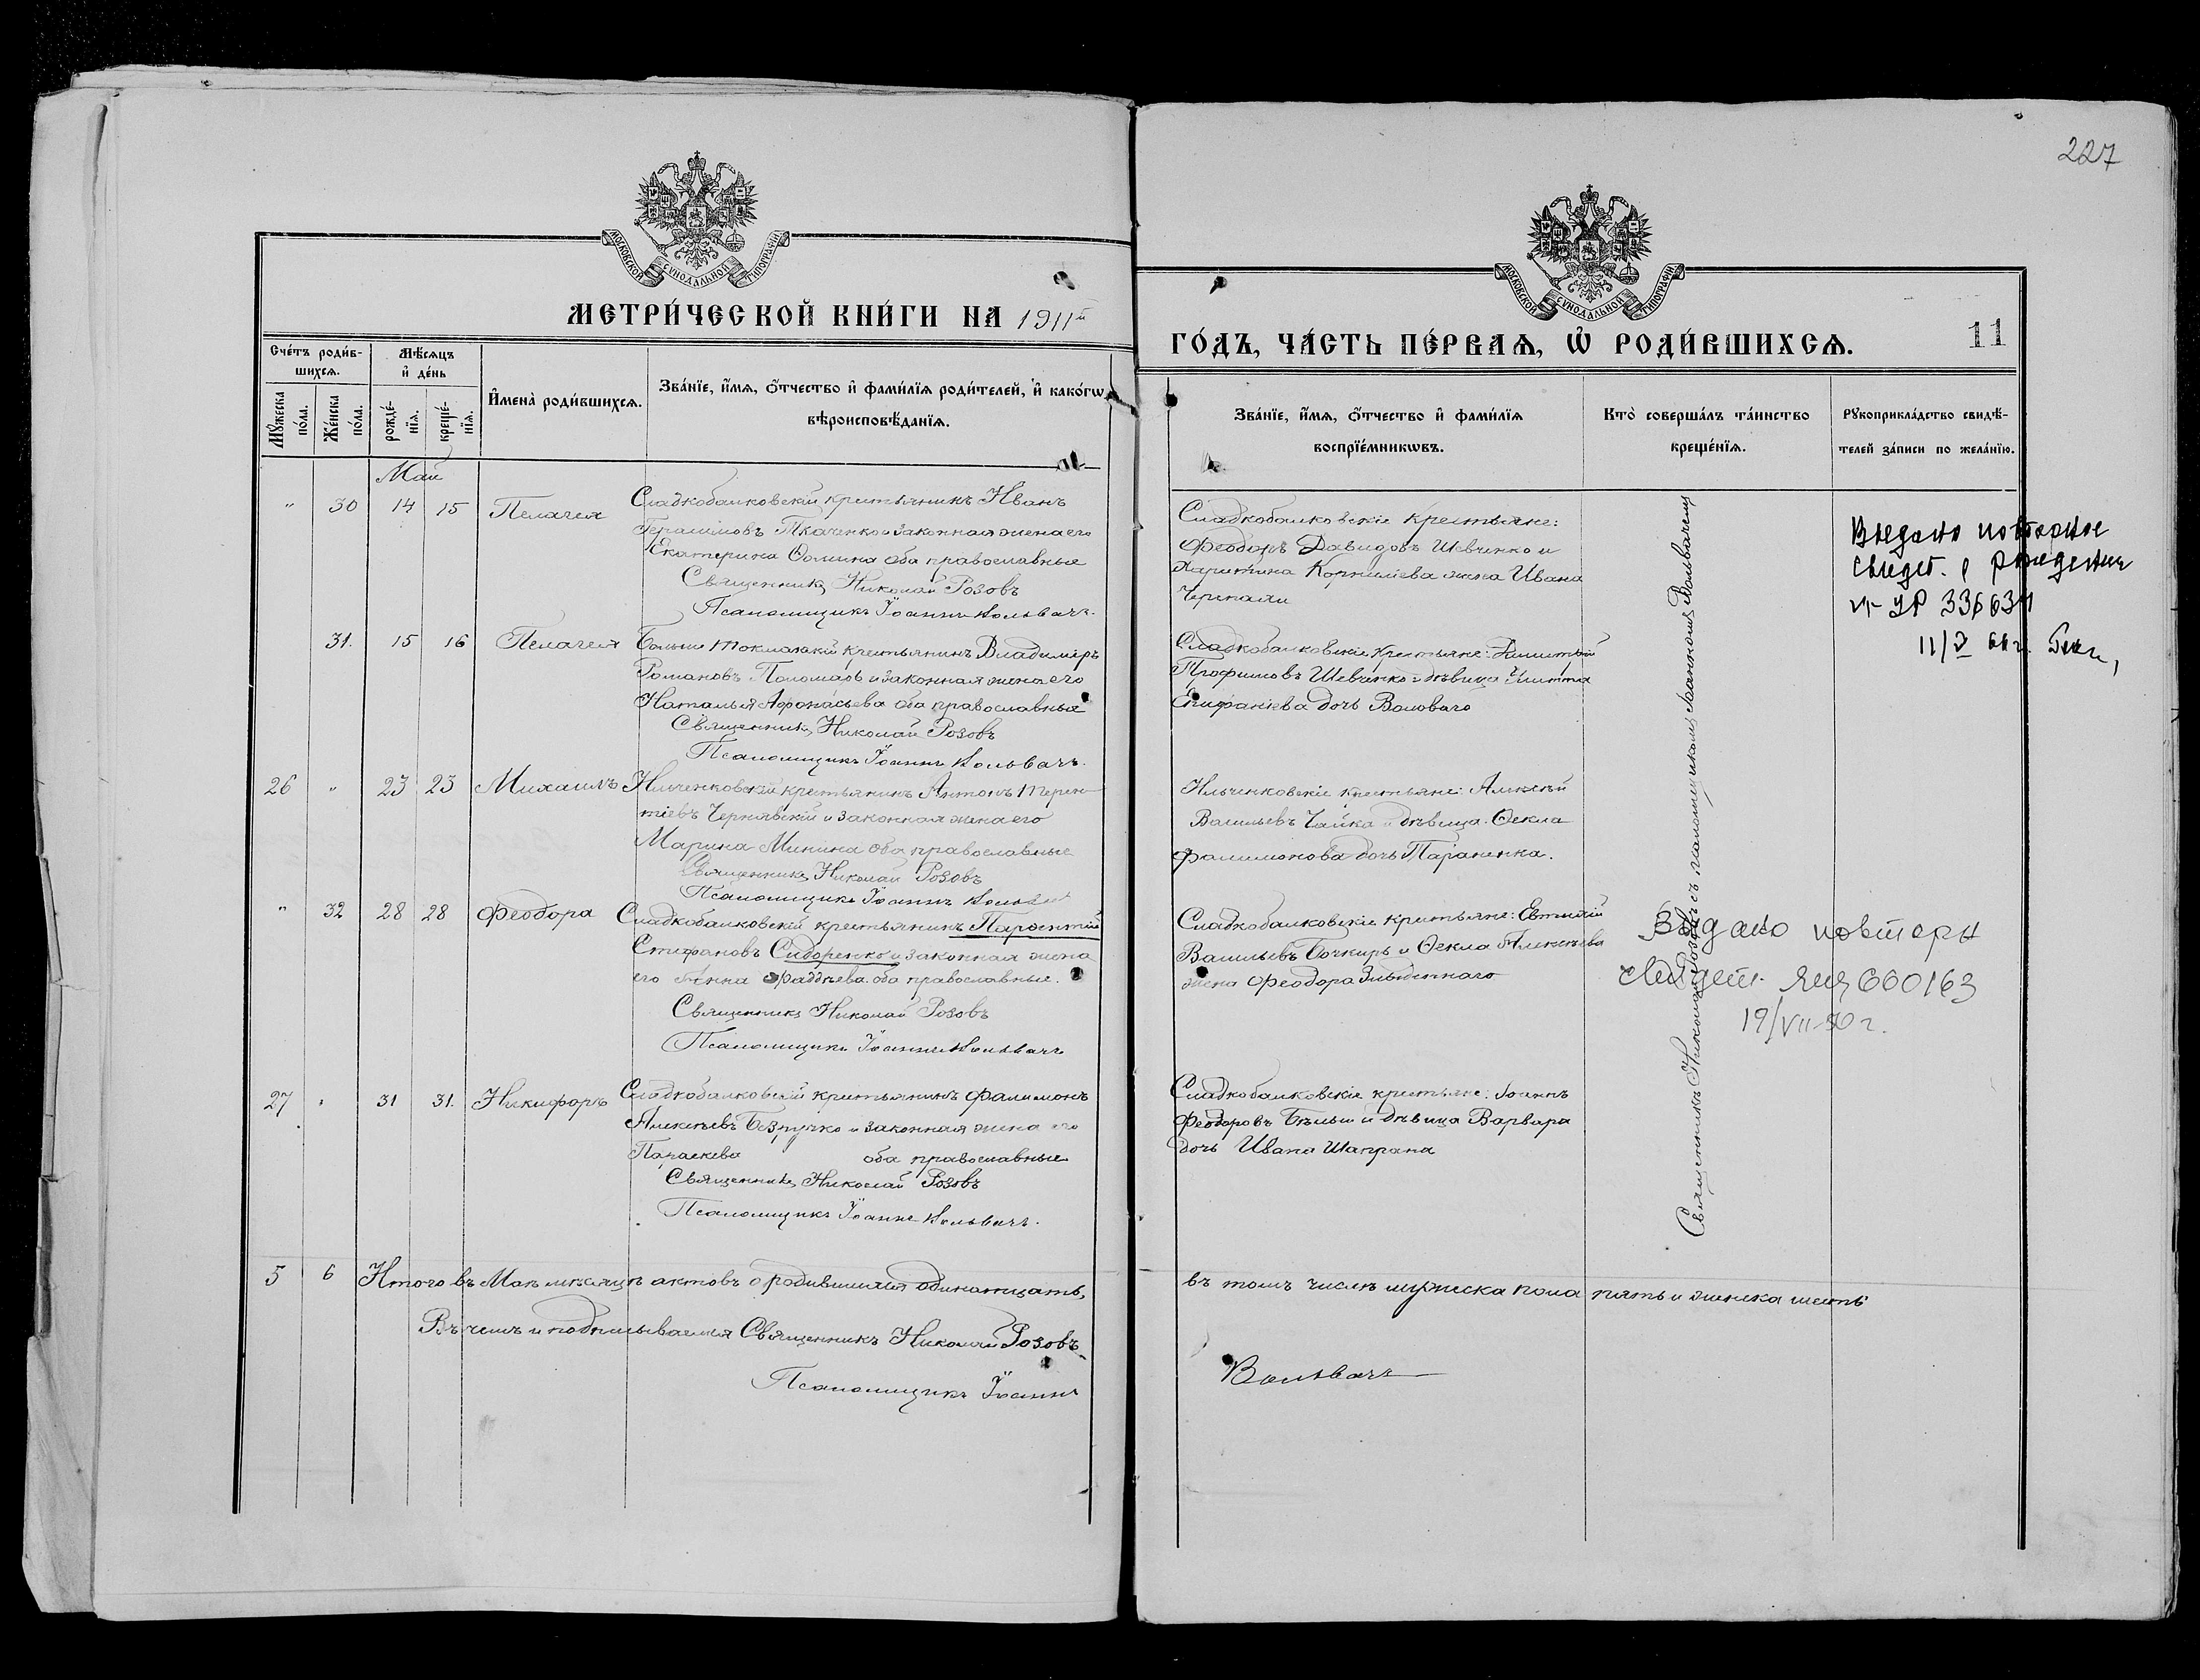 227
МОСКОВСКОЙ СѴНОДАЛЬНОЙ ТИПОГРАФІИ
МОСКОВСКОЙ СѴНОДАЛЬНОЙ ТИПОГРАФІИ
МЕТРИ́ЧЕСКОЙ КНИ́ГИ НА 1911й
ГО́ДЪ, ЧА́СТЬ ПЕ́РВАѦ, Ѡ РОДИ́ВШИХСѦ.
11
Сче́тъ роди́в-
шихсѧ.
Мѣ́сѧцъ
и҆ де́нь
Му́жеска
по́ла.
Же́нска
по́ла.
рожде́-
нїѧ.
креще́-
нїѧ.
И҆мена̀ роди́вшихсѧ.
Зва́нїе, и҆́мѧ, ѻ҆́тчество и҆ фами́лїѧ роди́телей, и҆ како́гѡ
вѣроисповѣ́данїѧ.
Зва́нїе, и҆́мѧ, ѻ҆́тчество и҆ фами́лїѧ
воспрїе́мникѡвъ.
Кто̀ соверша́лъ та́инство
креще́нїѧ.
Рукоприкла́дство свидѣ́-
телей за́писи по жела́нїю.
Май
" 30 14 15 Пелагея
Сладкобалковскій крестьянинъ Иванъ
Герасимовъ Ткаченко и законная жена его
Екатерина Фомина оба православные
Священникъ Николай Розовъ
Псаломщикъ Іоаннъ Вольвачъ.
Сладкобалковскіе крестьяне:
Феодоръ Давидовъ Шевченко и
Харитина Корнилиева жена Ивана
Выдано повторное
свидет. о рождении
11/
31. 15 16 Пелагея
Больше Токмакскій крестьянинъ Владимиръ
Романовъ и законная жена его
Наталья Афонасьева оба православные
Священникъ Николай Розовъ
Псаломщикъ Іоаннъ Вольвачъ.
Сладкобалковскіе крестьяне: Димитрій
Трофимовъ Шевченко и дѣвица
Епифаніева дочь Воловаго
26 " 23 23 Михаилъ
Ильченковскій крестьянинъ Антонъ Терен-
тіевъ Чернявскій и законная жена его
Марина Минина оба православные
Священникъ Николай Розовъ
Псаломщикъ Іоаннъ Вольвачъ
Ильченковскіе крестьяне: Алексѣй
Васильевъ Чайка и дѣвица Фекла
Филимонова дочь Тараненка.
" 32 28 28 Феодора
Сладкобалковскій крестьянинъ Парфентій
Стефановъ Сидоренко и законная жена
его Анна Фаддѣева оба православные.
Священникъ Николай Розовъ
Псаломщикъ Іоаннъ Вольвачъ
Сладкобалковскіе крестьяне: Евтихій
Васильевъ Бочкирь и Фекла Алексѣева
жена Феодора
Выдано повторн
свидет. 660163
19/VII-50 г.
27 " 31 31. Никифоръ
Сладкобалковскій крестьянинъ Филимонъ
Алексѣевъ Безручко и законная жена его
Параскева оба православные
Священникъ Николай Розовъ
Псаломщикъ Іоаннъ Вольвачъ.
Сладкобалковскіе крестьяне: Іоаннъ
Феодоровъ Бѣлый и дѣвица Варвара
дочь Ивана Шапрана
Священникъ Николай Розовъ съ псаломщикомъ Іоанномъ Вольвачемъ
5 6 Итого въ Маѣ мѣсяцѣ актовъ о родившихся одинатцать,
въ томъ числѣ мужеска пола пять и женска шесть
Въ чемъ и подписываемся Священникъ Николай Розовъ
Псаломщикъ Іоаннъ
Вольвачъ